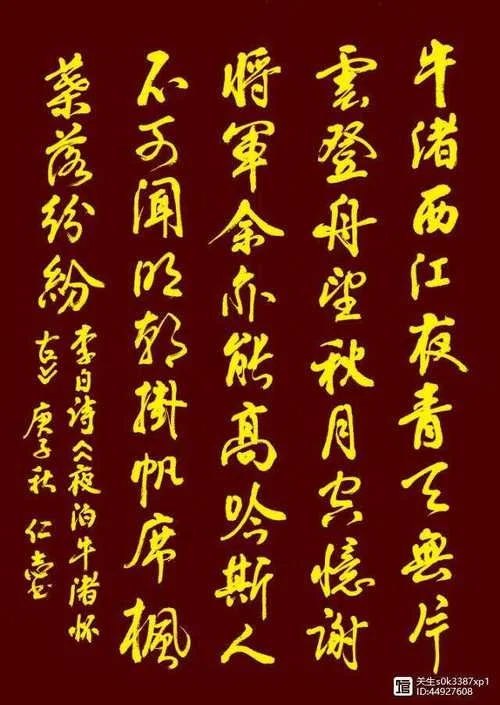 牛渚西江夜青天無片
雲登舟望秋月空憶謝
將軍余亦能高吟斯人
不可聞明朝掛帆席楓
葉落紛紛
李白诗《夜泊牛渚怀
古》庚子秋 仁
关生s0k3387xp1
ID:44927608